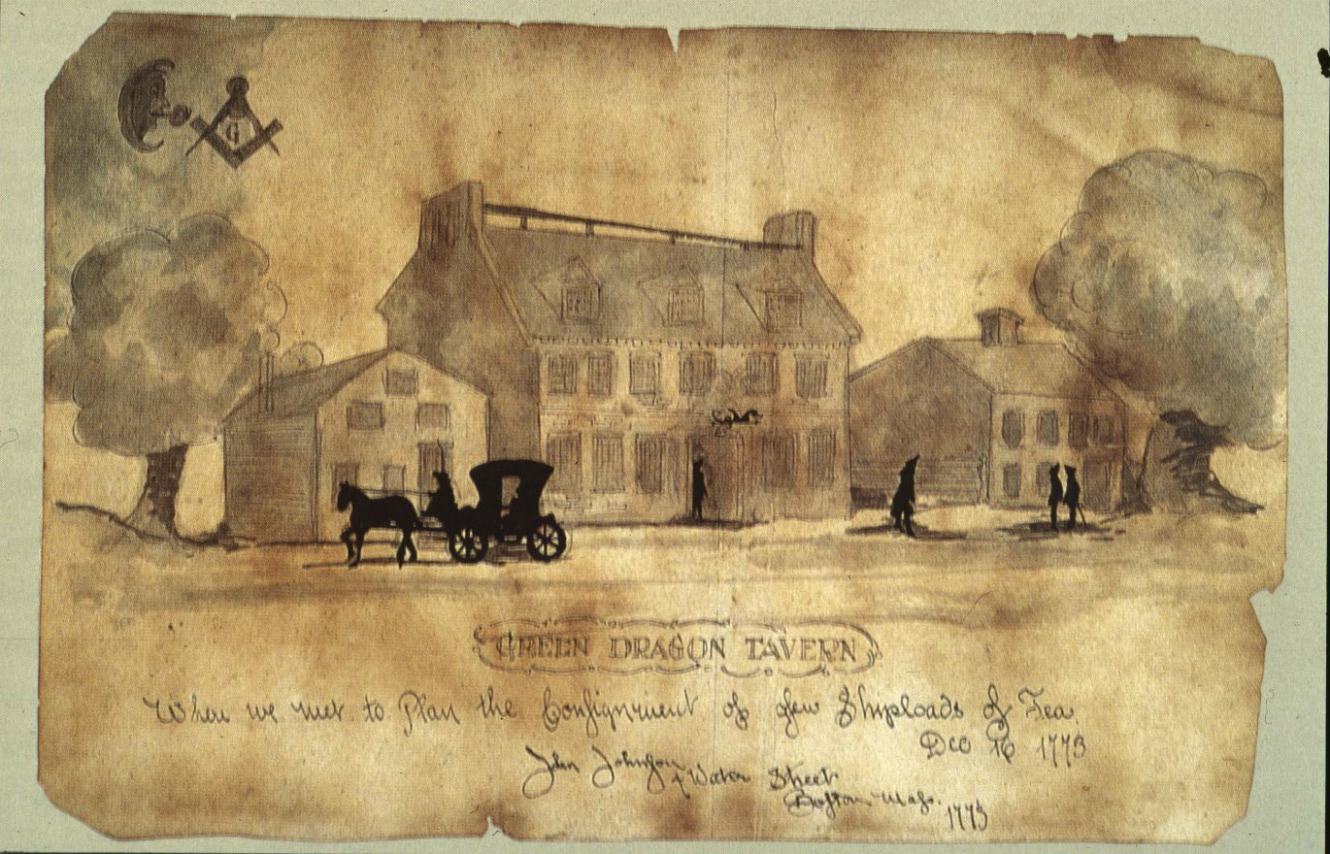 G
GREEN DRAGON TAVERN
Where we met to Plan the Conſignment of a few Shiploads of Tea.
Dec 16 1773
John Johnſon
4 Water Street
Boſton Maſs. 1773